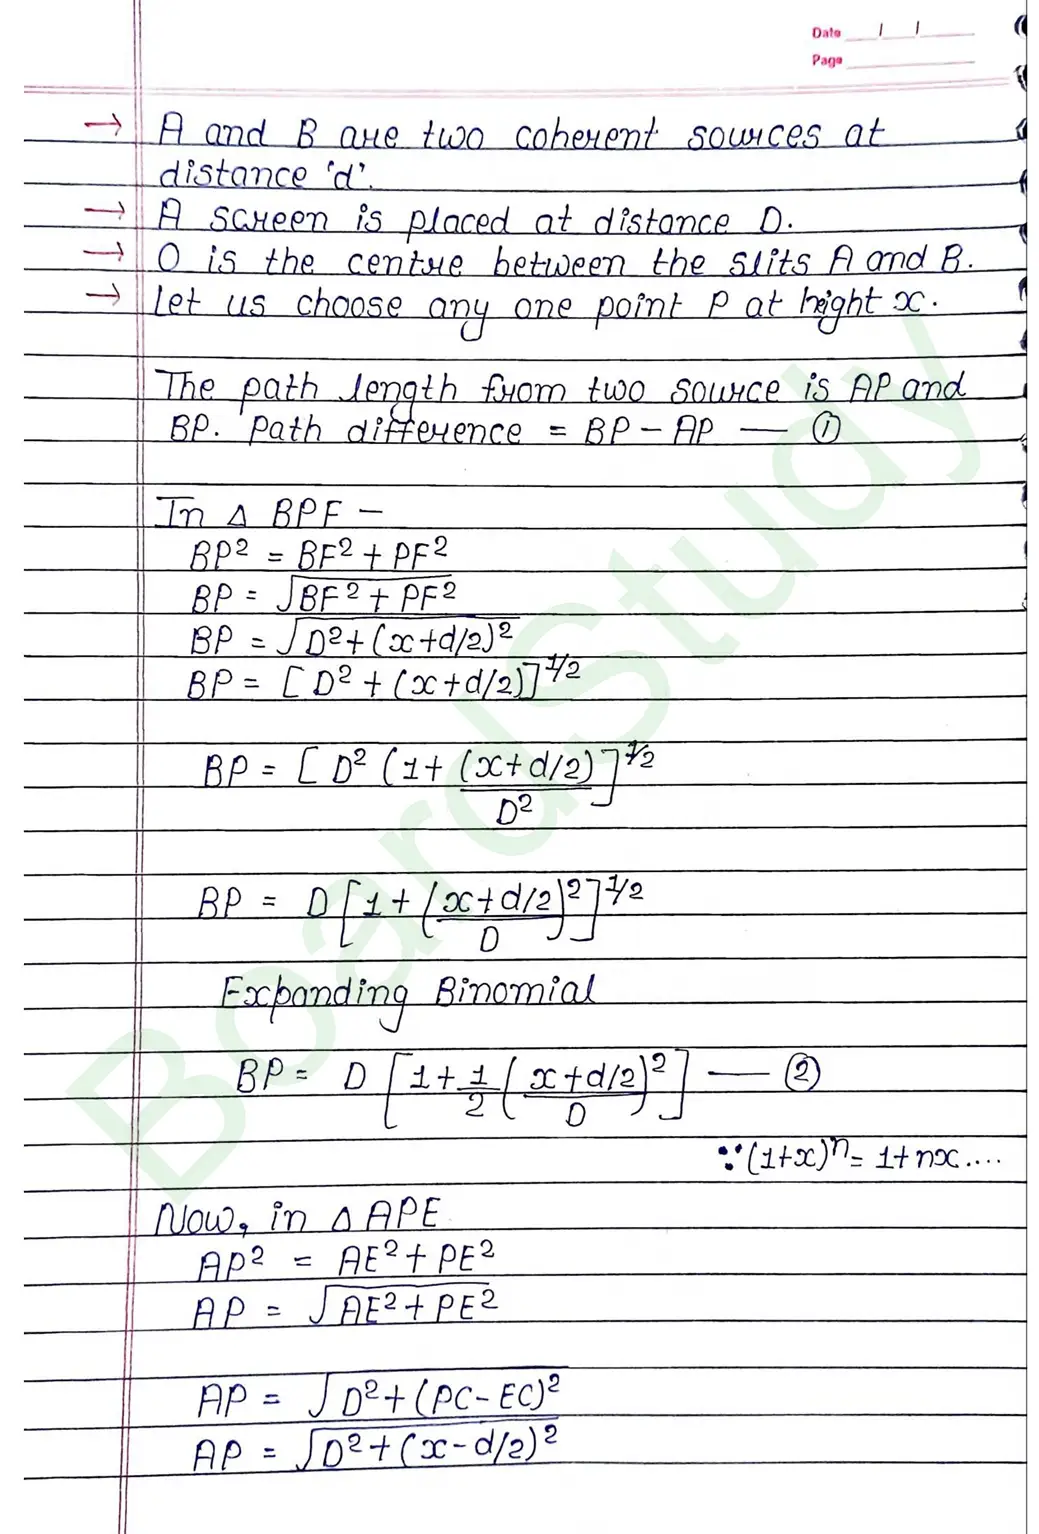 Date / /
Page
→ A and B are two coherent sources at
distance 'd'.
→ A screen is placed at distance D.
→ O is the centre between the slits A and B.
→ Let us choose any one point P at height x.
The path length from two source is AP and
BP. Path difference = BP - AP — ①
In △ BPF -
BP² = BF² + PF²
BP = √BF² + PF²
BP = √D² + (x+d/2)²
BP = [D² + (x+d/2)]^1/2
BP = [D² (1 + (x+d/2)/D²]^1/2
BP = D[1 + (x+d/2/D)²]^1/2
Expanding Binomial
BP = D[1 + 1/2 (x+d/2/D)²] — ②
∵ (1+x)ⁿ = 1+nx....
Now, in △ APE
AP² = AE² + PE²
AP = √AE² + PE²
AP = √D² + (PC - EC)²
AP = √D² + (x - d/2)²
BoardStudy